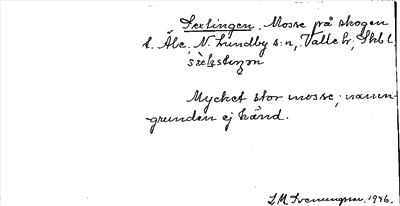 Sextingen. Mosse på skogen
t. Åle. N. Lundby s:n, Valle hr, Skbl.
Mycket stor mosse; namn-
grunden ej känd.
1946.